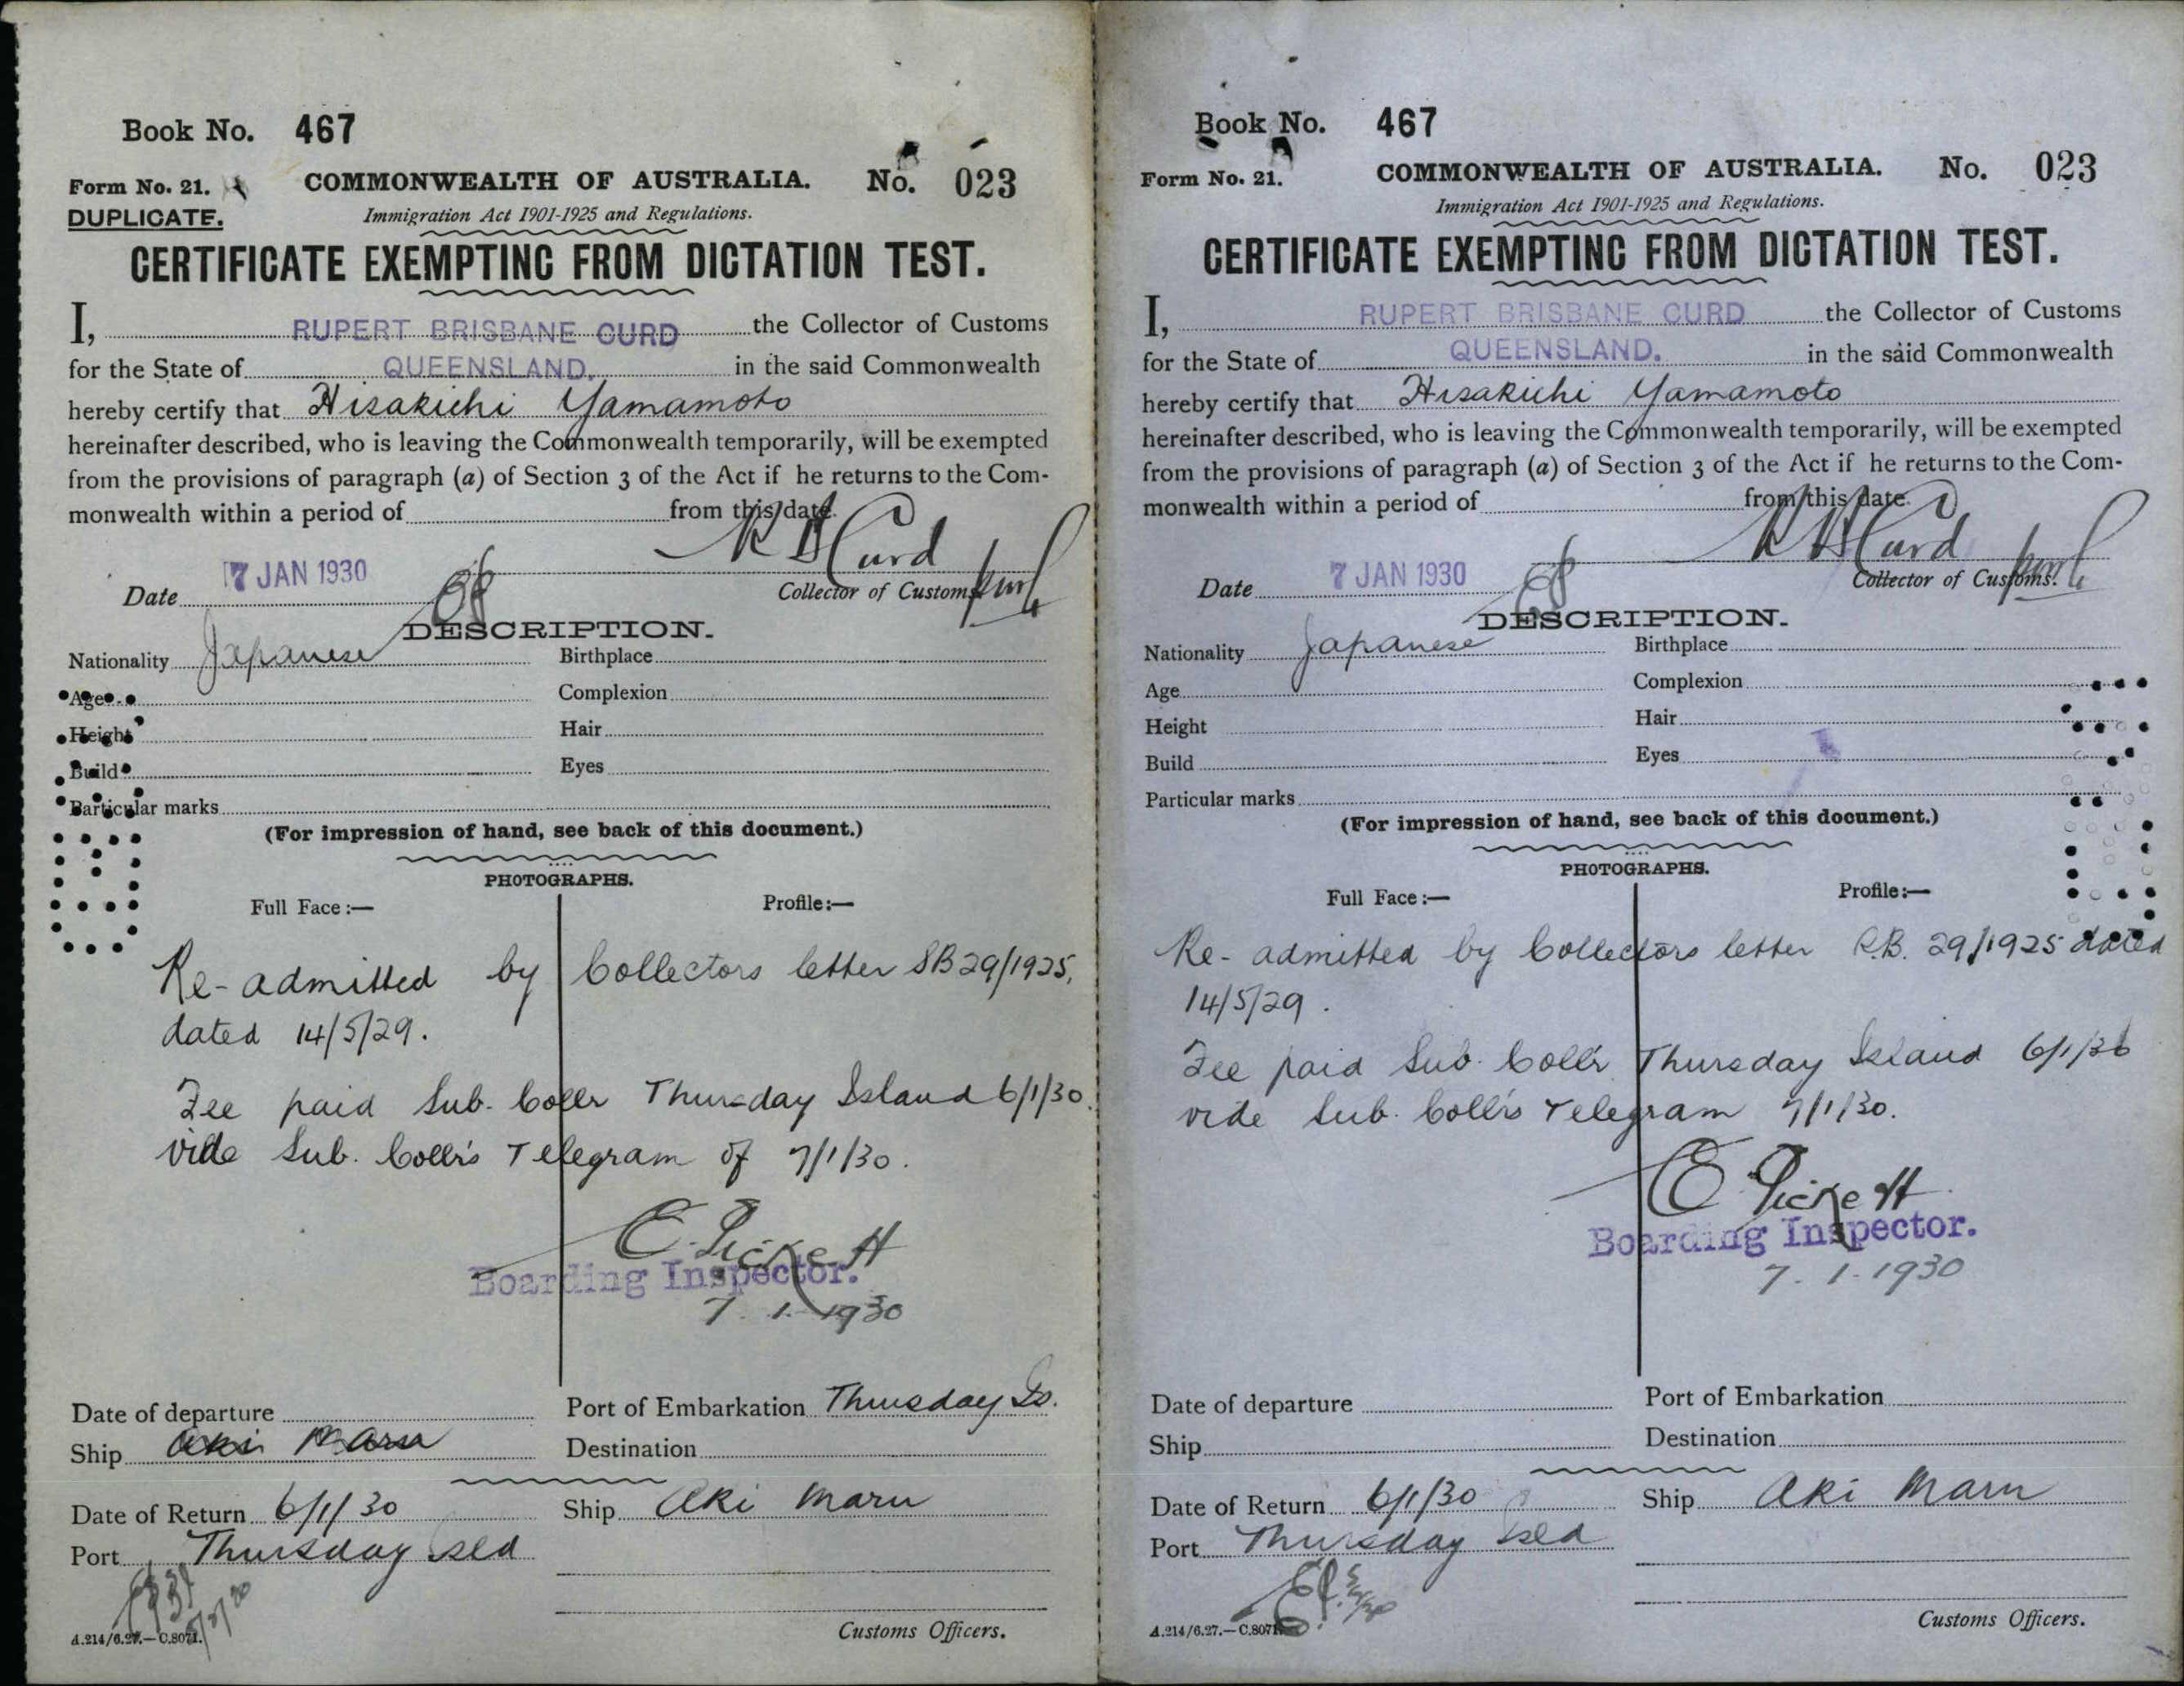 Book No. 467
Form No. 21. COMMONWEALTH OF AUSTRALIA. No. 023
DUPLICATE. Immigration Act 1901-1925 and Regulations.
CERTIFICATE EXEMPTING FROM DICTATION TEST.
I, RUPERT BRISBANE CURD the Collector of Customs
for the State of QUEENSLAND. in the said Commonwealth
hereby certify that Hisakichi Yamamoto
hereinafter described, who is leaving the Commonwealth temporarily, will be exempted
from the provisions of paragraph (a) of Section 3 of the Act if he returns to the Com-
monwealth within a period of from this date.
R B Curd
Date 7 JAN 1930 Collector of Customs
DESCRIPTION.
Nationality Japanese Birthplace
Age Complexion
Height Hair
Build Eyes
Particular marks
(For impression of hand, see back of this document.)
PHOTOGRAPHS.
Full Face:— Profile:—
Re-admitted by Collectors letter SB 29/1925,
dated 14/5/29.
Fee paid Sub. Coller Thursday Island 6/1/30.
vide Sub. Coll's Telegram of 7/1/30.
E. Pickett
Boarding Inspector.
7. 1. 1930
Date of departure Port of Embarkation Thursday Is.
Ship Aki Maru Destination
Date of Return 6/1/30 Ship Aki Maru
Port Thursday Isld
A.214/6.27.—C.8071. Customs Officers.
Book No. 467
Form No. 21. COMMONWEALTH OF AUSTRALIA. No. 023
Immigration Act 1901-1925 and Regulations.
CERTIFICATE EXEMPTING FROM DICTATION TEST.
I, RUPERT BRISBANE CURD the Collector of Customs
for the State of QUEENSLAND. in the said Commonwealth
hereby certify that Hisakichi Yamamoto
hereinafter described, who is leaving the Commonwealth temporarily, will be exempted
from the provisions of paragraph (a) of Section 3 of the Act if he returns to the Com-
monwealth within a period of from this date.
R B Curd
Date 7 JAN 1930 Collector of Customs.
DESCRIPTION.
Nationality Japanese Birthplace
Age Complexion
Height Hair
Build Eyes
Particular marks
(For impression of hand, see back of this document.)
PHOTOGRAPHS.
Full Face:— Profile:—
Re-admitted by Collectors letter 29/1925 dated
14/5/29.
Fee paid Sub. Coll'r Thursday Island 6/1/30
vide Sub. Coll's Telegram 7/1/30.
E Pickett
Boarding Inspector.
7. 1. 1930
Date of departure Port of Embarkation
Ship Destination
Date of Return 6/1/30 Ship Aki Maru
Port Thursday Isld
A.214/6.27.—C.8071. Customs Officers.